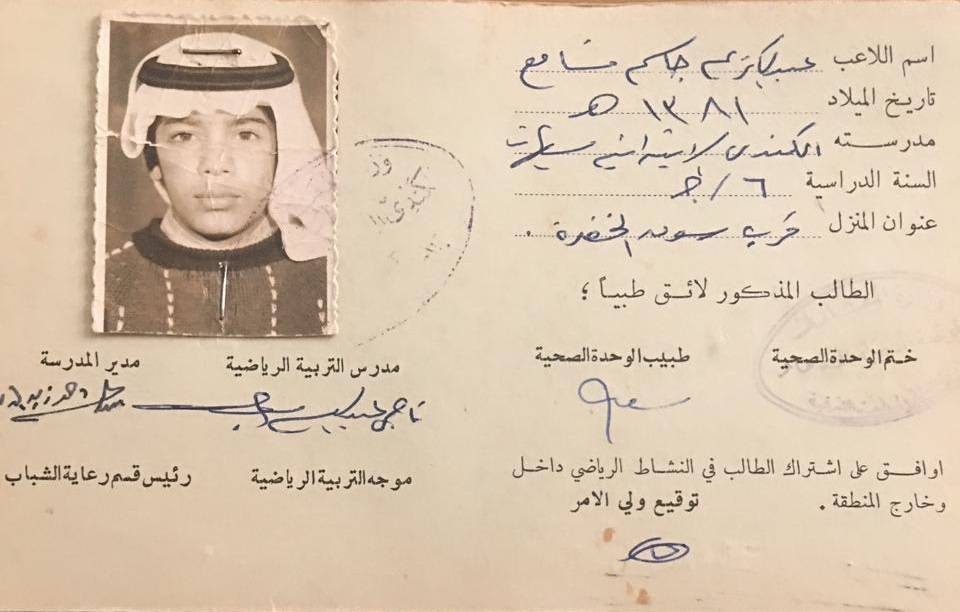 اسم اللاعب عبدالكريم جاسم
تاريخ الميلاد ١٣٨١ هـ
مدرسته الكندي الابتدائية
السنة الدراسية ٦/ج
عنوان المنزل قرب سوق الخضرة .
الطالب المذكور لائق طبياً ؛
ختم الوحدة الصحية
طبيب الوحدة الصحية
مدرس التربية الرياضية
مدير المدرسة
اوافق على اشتراك الطالب في النشاط الرياضي داخل
وخارج المنطقة .
توقيع ولي الامر
موجه التربية الرياضية
رئيس قسم رعاية الشباب